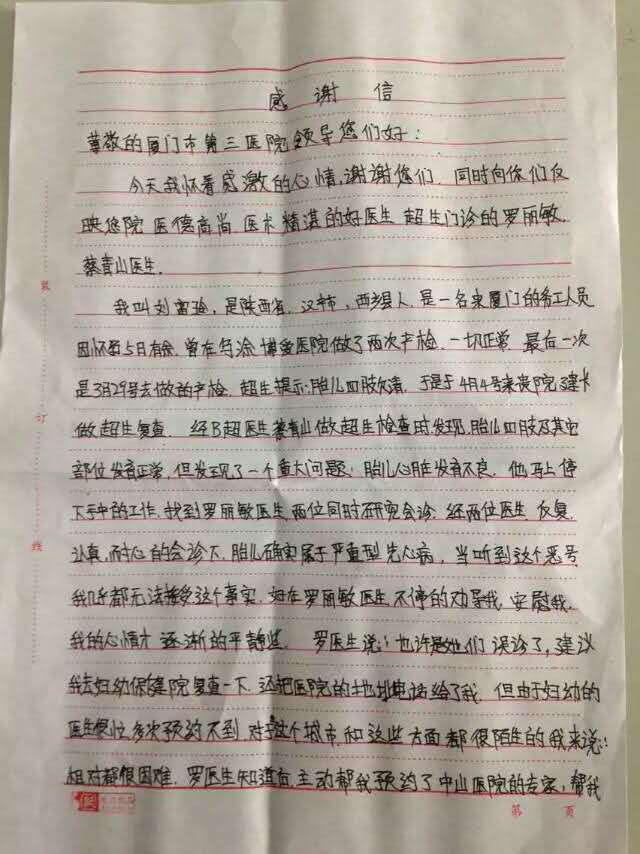 感谢信
尊敬的厦门市第三医院领导您们好：
今天我怀着感激的心情，谢谢您们，同时向你们反
映您院医德高尚医术精湛的好医生，超生门诊的罗丽敏，
蔡青山医生。
我叫刘，是陕西省，汉中市，西乡县人，是一名来厦门的务工人员
因怀孕5月有余，曾在马涂博爱医院做了两次产检，一切正常，最后一次
是3月29号去做的产检，超生提示：胎儿四肢欠清，于是于4月4号来贵院建卡
做超生复查，经B超医生蔡青山做超生检查时发现，胎儿四肢及其它
部位发育正常，但发现了一个重大问题：胎儿心脏发育不良，他马上停
下手中的工作，找到罗丽敏医生，两位同时研究会诊，经两位医生，反复，
认真，耐心的会诊下，胎儿确实属于严重型先心病，当听到这个恶号
我几乎都无法接受这个事实，好在罗丽敏医生不停的劝导我，安慰我，
我的心情才逐渐的平静些。罗医生说：也许是她们误诊了，建议
我去妇幼保健院复查一下，还把医院的地址电话给了我，但由于妇幼的
医生很忙，多次预约不到，对于这个城市，和这些方面都很陌生的我来说：
相对都很困难，罗医生知道后，主动帮我预约了中山医院的专家，帮我
装
订
线
第 页